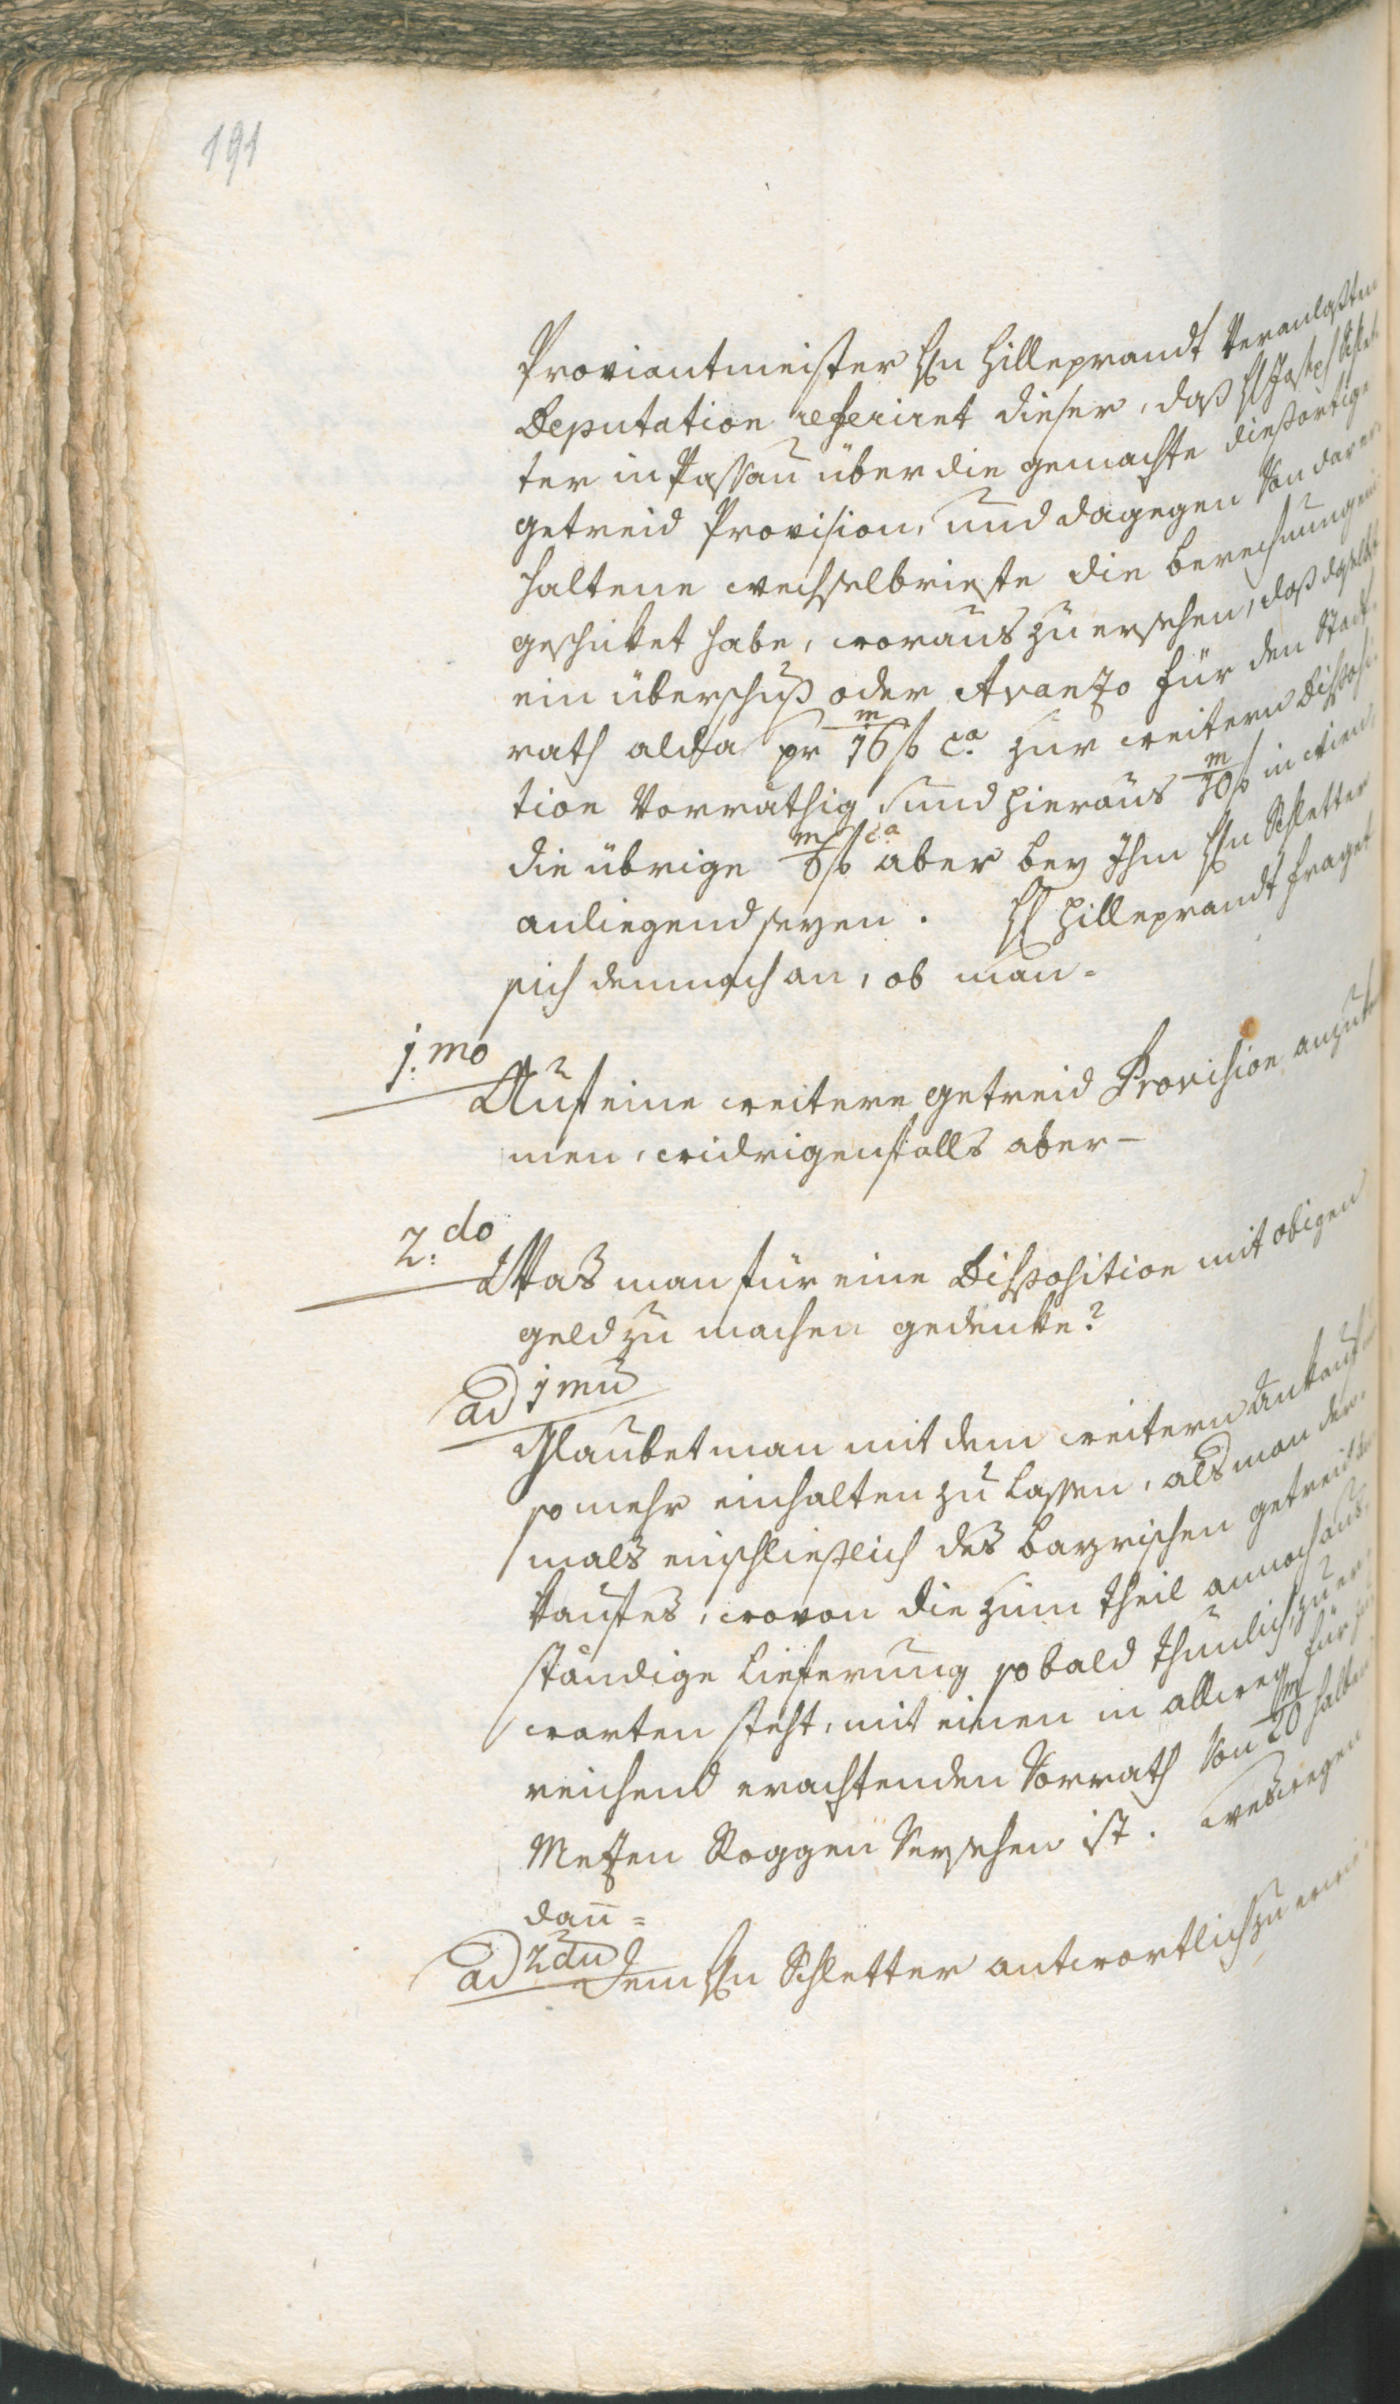 191
Proviantmeister Hn Hilleprandt veranlaßten
Deputation referiret dieser, daß H Joseph Schlet
ter in Passau über die gemachte diesortige
getreid Provision, und dagegen von dar er
haltene wechselbriefe die berechnung ein
geschicket habe, woraus zu ersehen, daß daselbst
ein überschuß oder Avanzo für den Stadt
rath alda pr 16 m f ca zur weitern Disposi
tion vorräthig, und hieraus 10 m f in Wien,
die übrige 6 m f ca aber bey Ihm Hn Schletter
anliegend seyen. H Hilleprandt fraget
sich demnach an, ob man-
1.mo
Auf eine weitere getreid Provision anzutra
men, widrigenfalls aber-
2.do
Was man für eine Disposition mit obigen
geld zu machen gedenke?
ad 1mu
Glaubet man mit dem weitern Ankauf
so mehr einhalten zu lassen, als man der
mals einschließlich des bayrischen getreid
kaufes, wovon die zum theil annoch aus
ständige lieferung so bald thunlich, zu er
warten steht, mit einen in allweg für
reichend erachtenden Vorrath von 20 m halben
Metzen Roggen versehen ist. weswegen
dann=
ad 2du
Dem Hn Schletter antwortlich zu